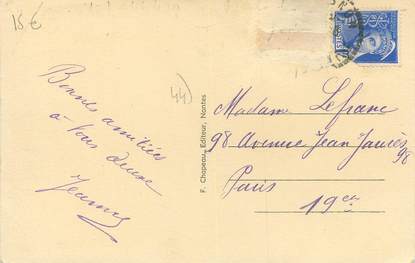 15 €
44)
Bonnes amitiés
à Vous deux
Jeanne
F. Chapeau, Editeur, Nantes
Madame Lefranc
98 Avenue Jean Jaurès
98
Paris
19e